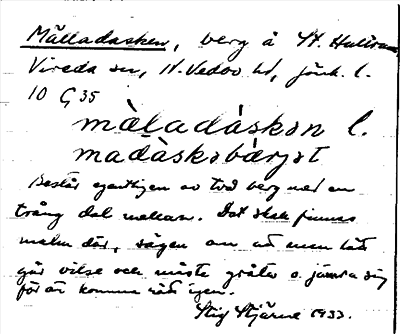 Målladasken, berg å St. Hultran
Vireda sn, N. Vedbo hd, Jönk. l.
10 G 35
måladåskən l.
madåskəbærjət
Består egentligen av två berg med en
trång dal mellan. Det skall finnas
malm där, sägen om att man lätt
går vilse och måste gråta o. jämra sig
för att komma rätt igen.
Stig Stjärne 1933.